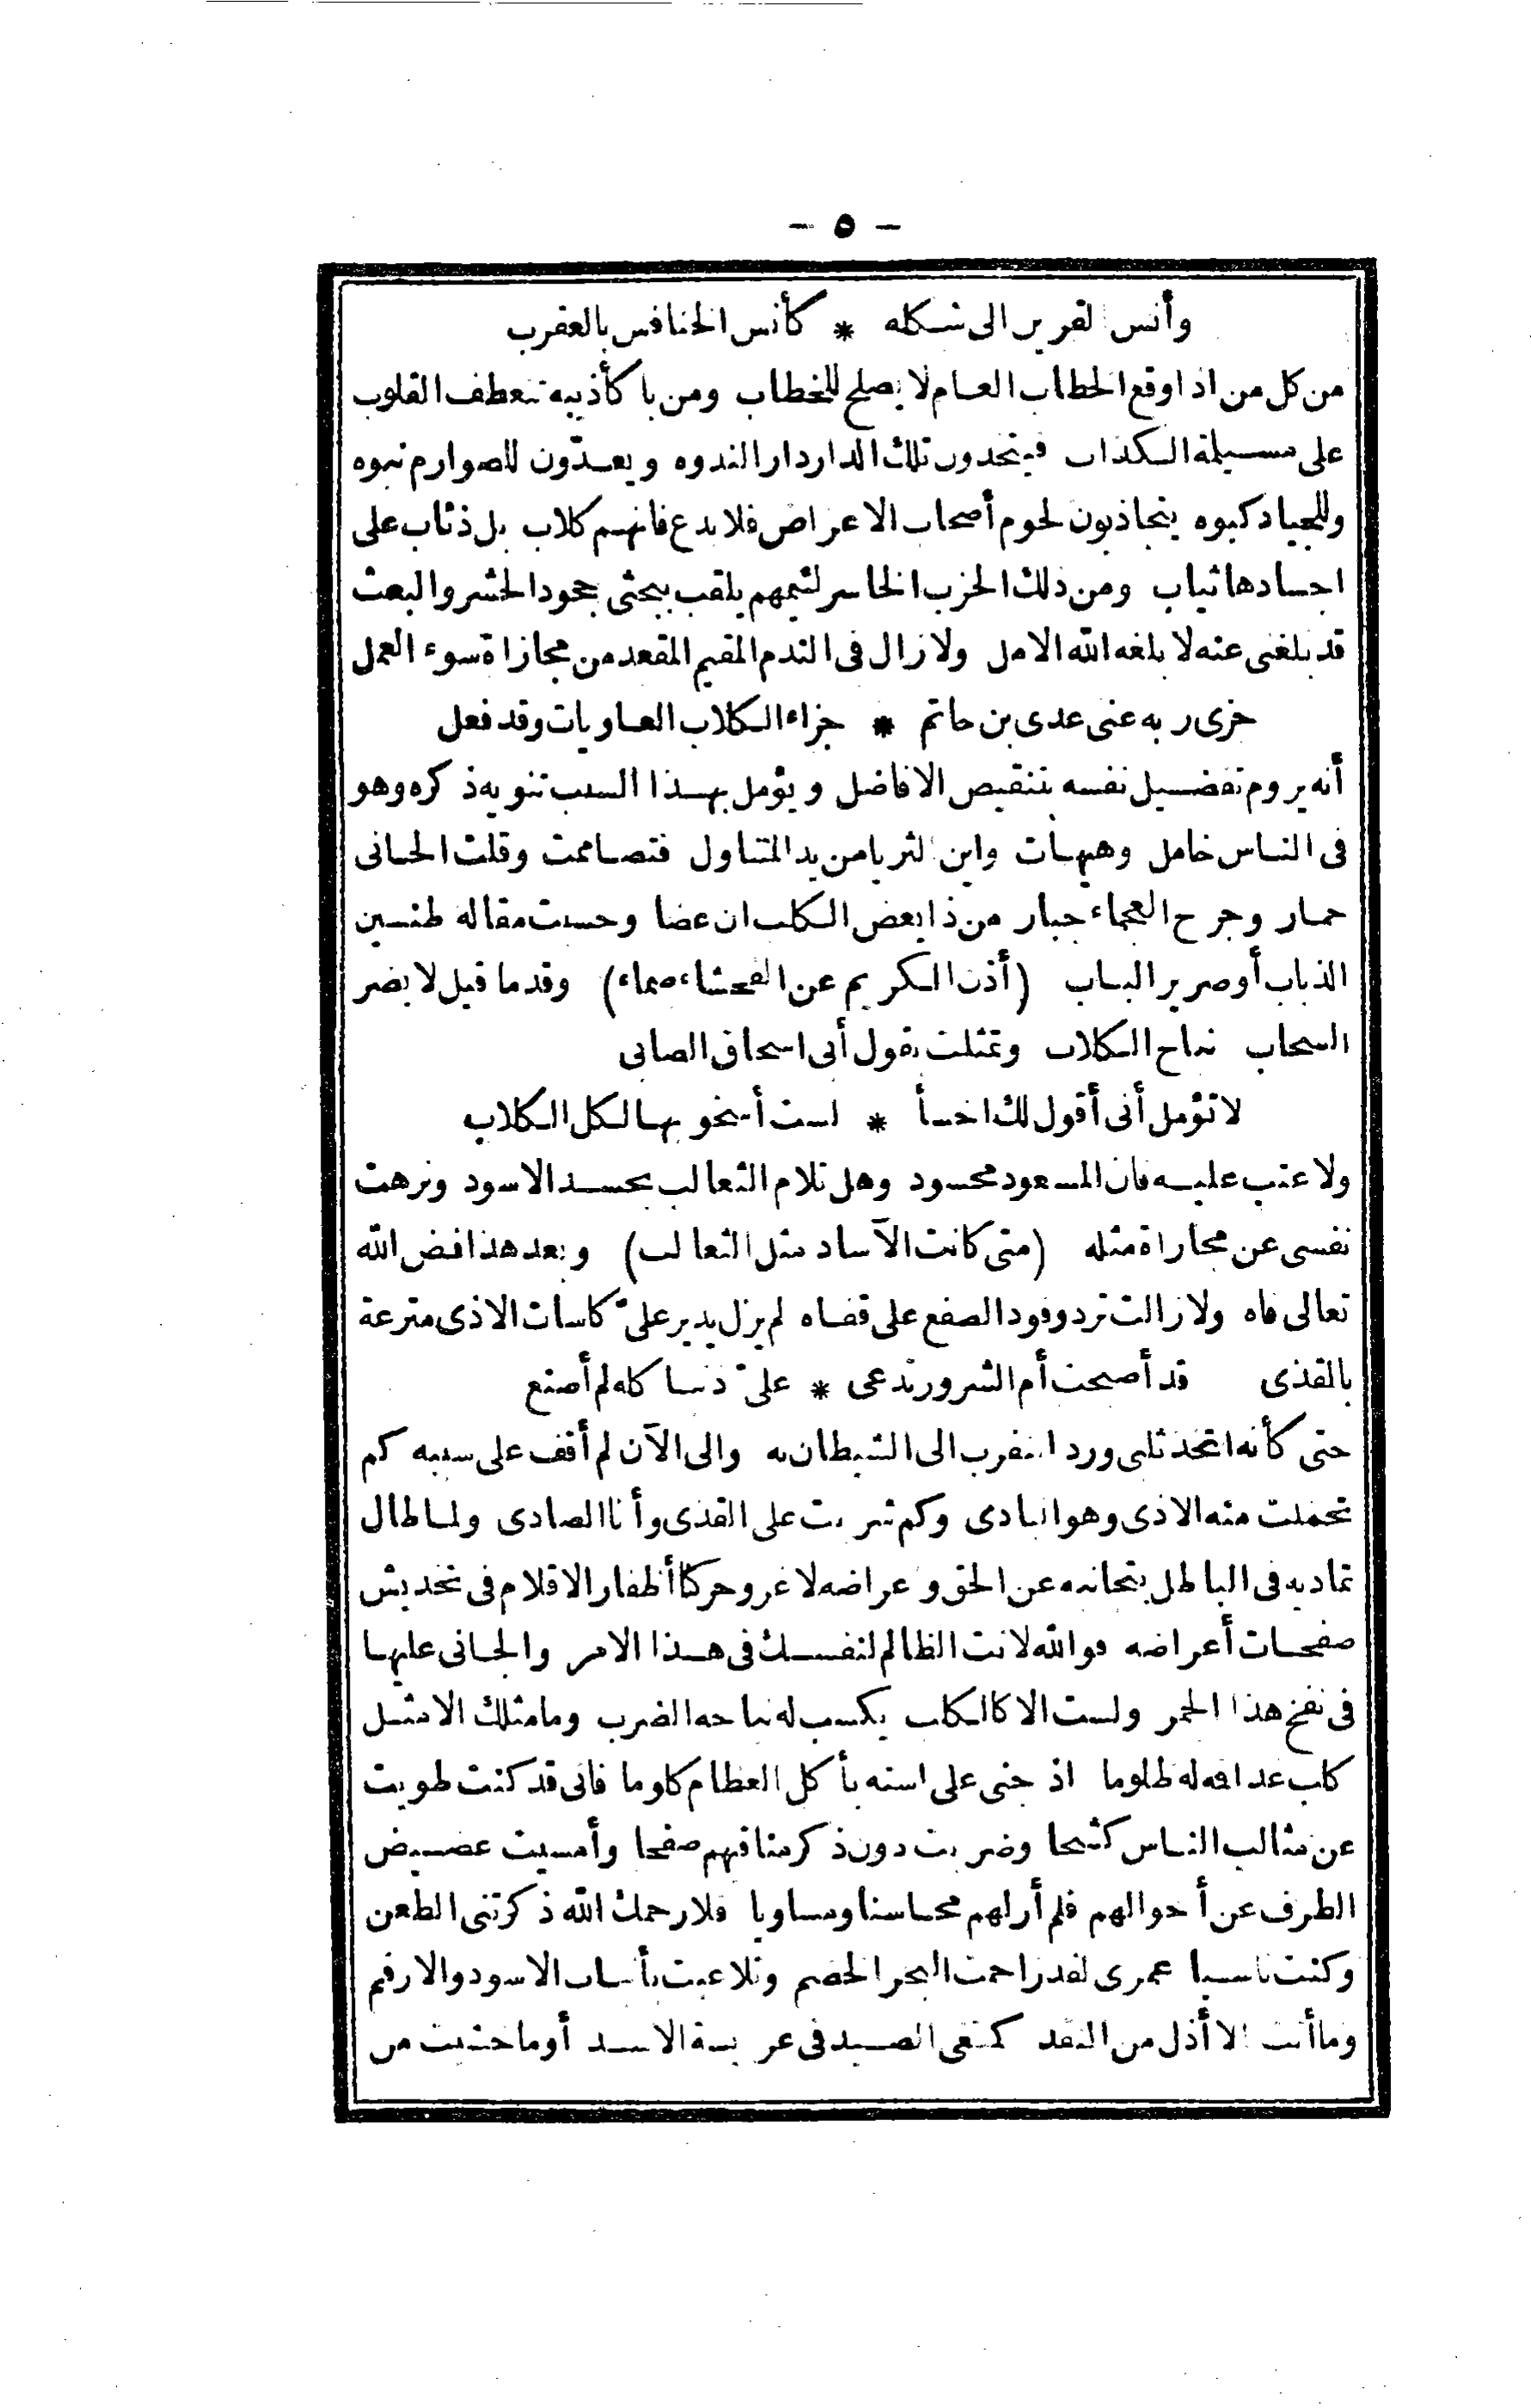 - ٥ -
وأنس القرير الى شكله * كأنس الخنافس بالعقرب
من كل من اذا وقع الخطاب العام لا يصلح للخطاب ومن با كأذيبه تنعطف القلوب
على مسيلمة الكذاب فيتخذون تلك الدار دار الندوه ويعدّون للصوارم نبوه
وللجياد كبوه يتجاذبون لحوم أصحاب الاعراض فلا بدع فانهم كلاب بل ذئاب على
اجسادها ثياب ومن ذلك الحزب الخاسر لئيمهم يلقب بجحود الحشر والبعث
قد بلغنى عنه لا بلغه الله الامل ولا زال فى الندم المقيم المقعد من مجازاة سوء العمل
جزى ربه عنى عدى بن حاتم * جزاء الكلاب العاويات وقد فعل
أنه يروم تفضيل نفسه بتنقيص الافاضل ويؤمل بهذا السبب تنويه ذكره وهو
فى الناس خامل وهيهات واين الثريا من يد المتناول فتصاممت وقلت الجانى
حمار وجرح العجماء جبار من ذا يعض الكلب ان عضا وحسبت مقاله طنين
الذباب أو صرير الباب (أذن الكريم عن الفحشاء صماء) وقدما قيل لا يضر
السحاب نباح الكلاب وتمثلت بقول أبى اسحاق الصابى
لا تؤمل أنى أقول لك اخسأ * لست أسخو بها لكل الكلاب
ولا عتب عليه فان المسعود محسود وهل تلام الثعالب بحسد الاسود ونزهت
نفسى عن مجاراة مثله (متى كانت الآساد مثل الثعالب) وبعد هذا فض الله
تعالى فاه ولا زالت ترد وفود الصفع على قفاه لم يزل يدير علىّ كاسات الاذى مترعة
بالقذى قد أصبحت أم الشرور تدعى * علىّ ذنبا كله لم أصنع
حتى كأنه اتخذ ثلبى وردا يتقرب الى الشيطان به والى الآن لم أقف على سببه كم
تحملت منه الاذى وهو البادى وكم شربت على القذى وأنا الصادى ولما طال
تماديه فى الباطل بتجانبه عن الحق واعراضه لا غرو حركا أظفار الاقلام فى تخديش
صفحات أعراضه فوالله لانت الظالم لنفسك فى هذا الامر والجانى عليها
فى نفخ هذا الجمر ولست الا كالكلب يكسب له نباحه الضرب وما مثلك الا مثل
كلب عدا فه له ظلوما اذ جنى على استه بأكل العظام كلوما فانى قد كنت طويت
عن مثالب الناس كشحا وضربت دون ذكر مناقبهم صفحا وأمسيت غضيض
الطرف عن أحوالهم فلم أر لهم محاسنا ومساويا فلا رحمك الله ذكرتنى الطعن
وكنت ناسيا عمرى لقد زاحمت البحر الخضم وتلاعبت بأنياب الاسود والارقم
وما أنت الا أذل من النقد كمبتغى الصيد فى عريسة الاسد أو ما خشيت من